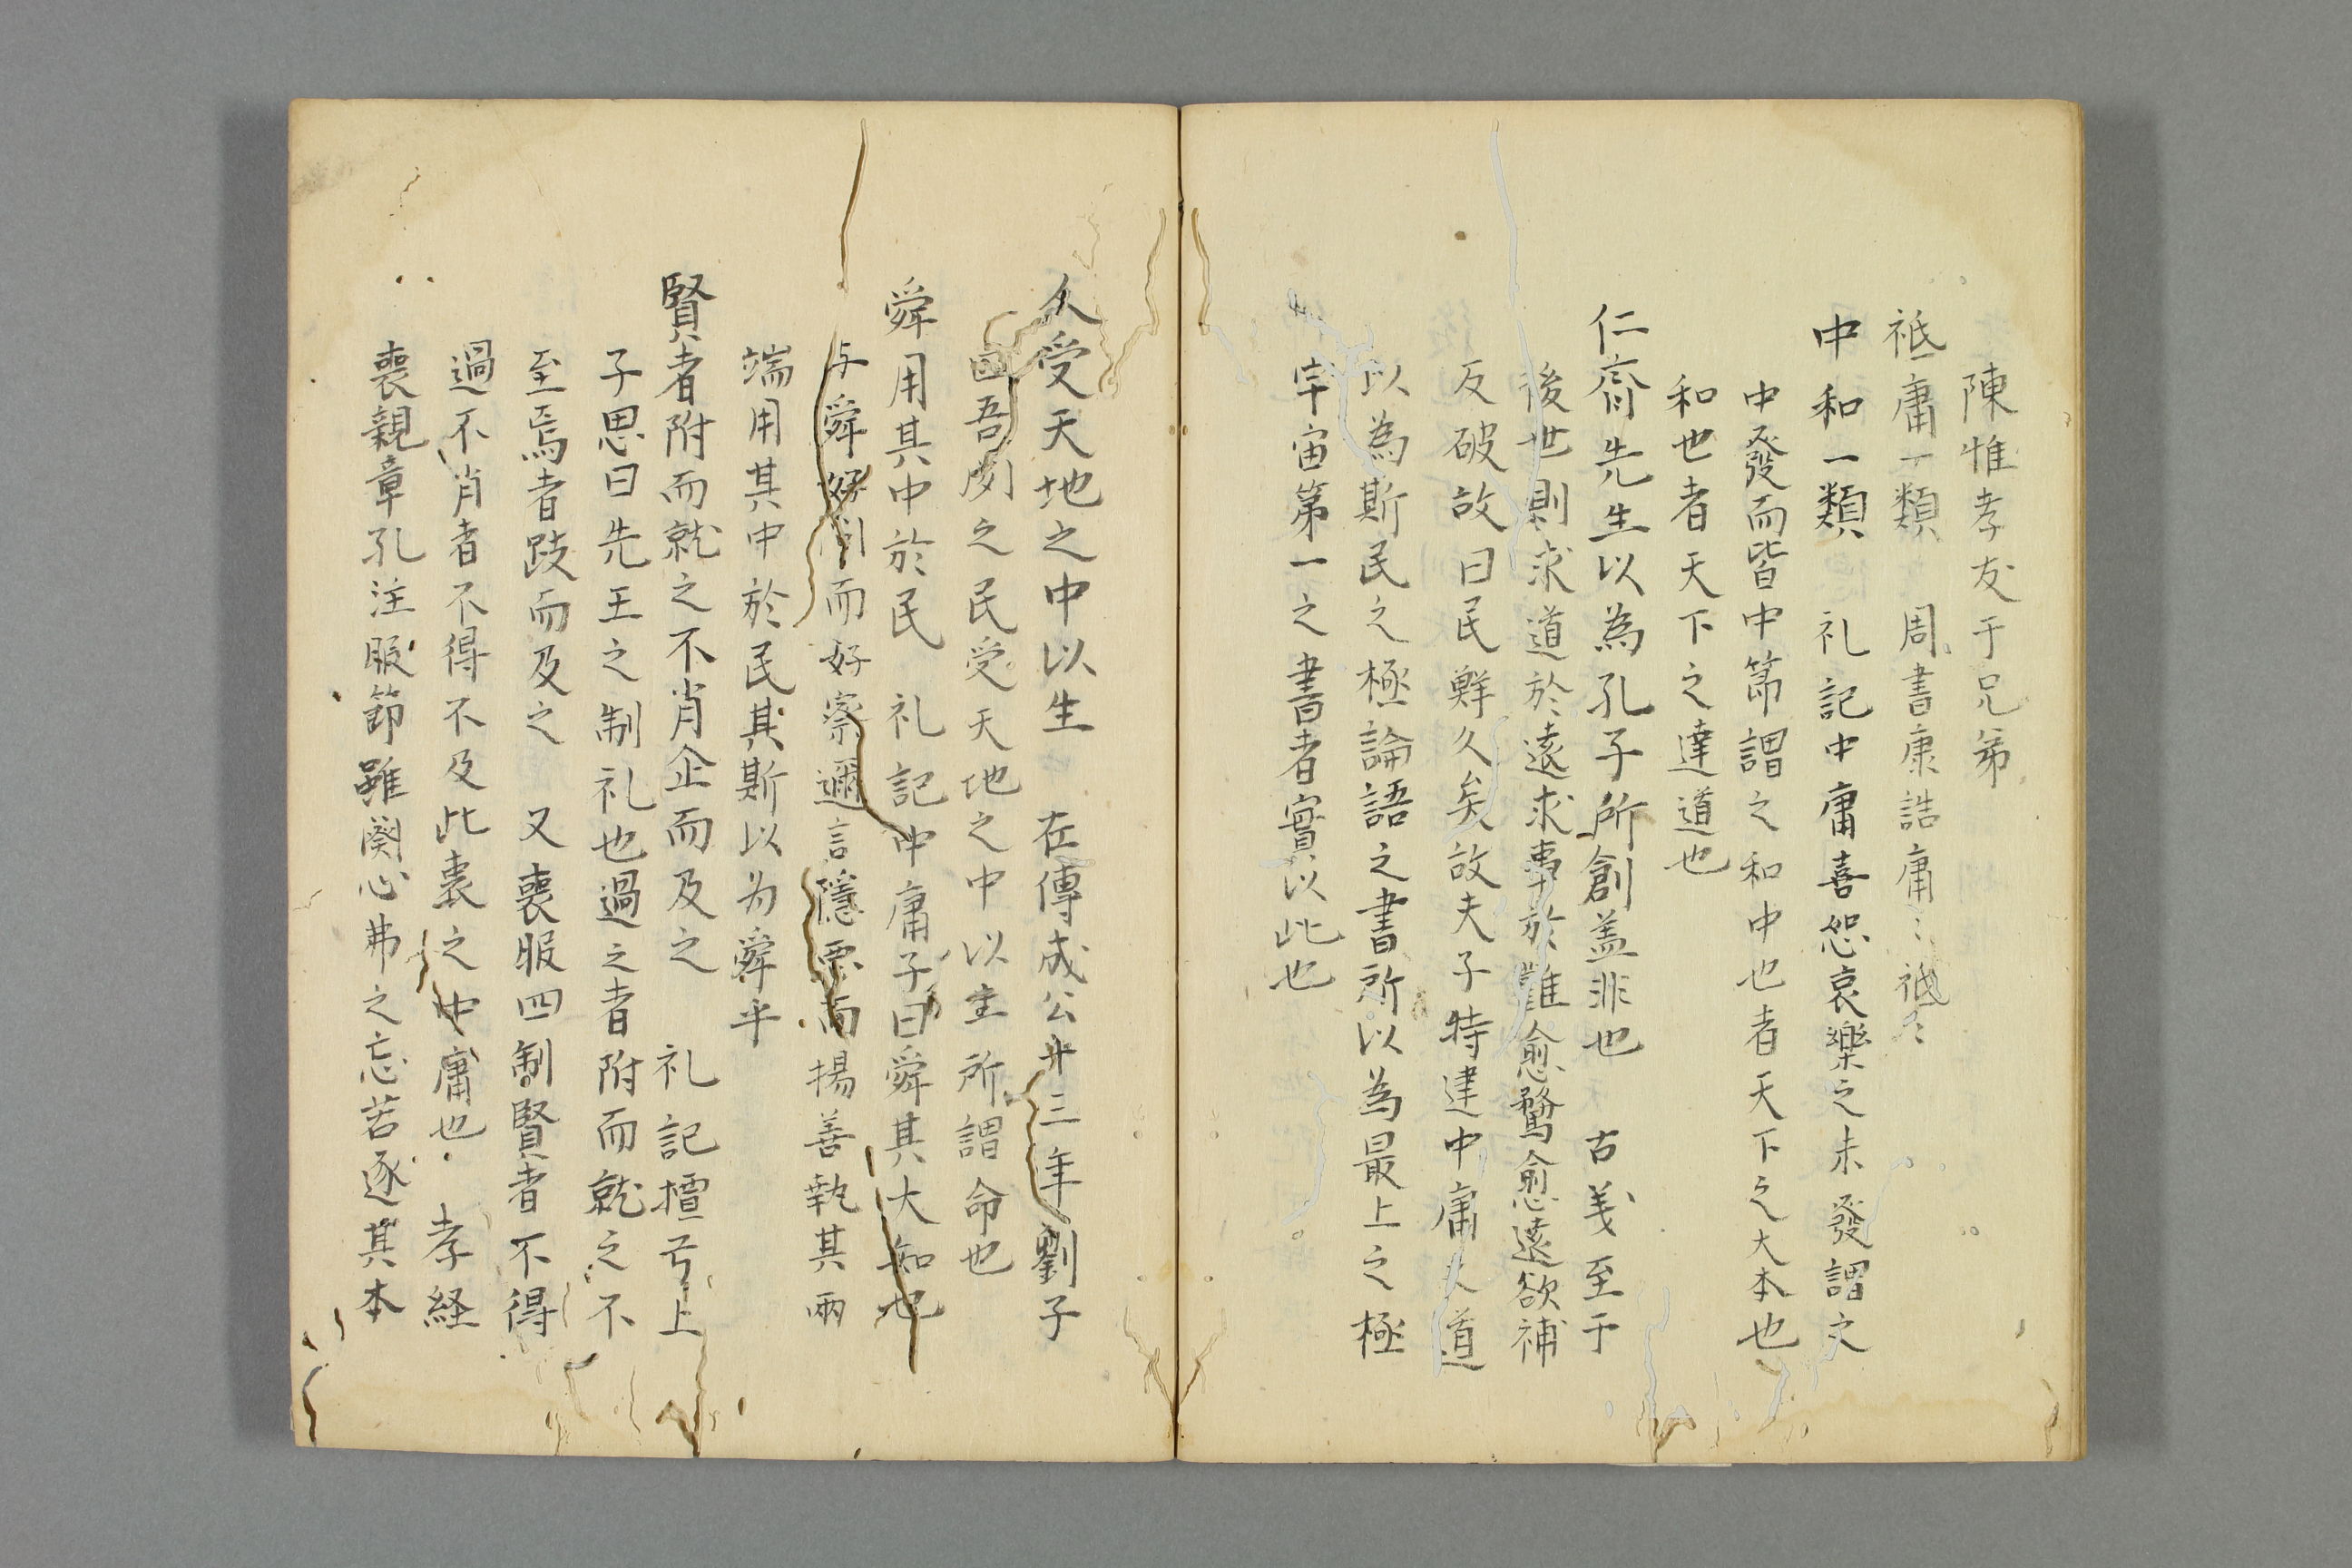 陳惟孝友于兄弟
祗庸一類　周書康誥庸〻祗〻
中和一類　礼記中庸喜怒哀樂之未發謂之
中發而皆中節謂之和中也者天下之大本也
和也者天下之達道也
仁齋先生以為孔子所創盖非也　古義至于
後世則求道於遠求事於難愈騖愈遠欲補
反破故曰民鮮久矣故夫子特建中庸之道
以為斯民之極論語之書所以為最上之極
宇宙第一之書者實以此也
人受天地之中以生　左傳成公十三年劉子
曰吾聞之民受天地之中以生所謂命也
舜用其中於民　礼記中庸子曰舜其大知也
与舜好問而好察邇言隱悪而揚善執其兩
端用其中於民其斯以为舜乎
賢者附而就之不肖企而及之　礼記檀弓上
子思曰先王之制礼也過之者附而就之不
至焉者跂而及之　又喪服四制賢者不得
過不肖者不得不及此喪之中庸也　孝経
喪親章孔注服節雖闋心弗之忘若遂其本